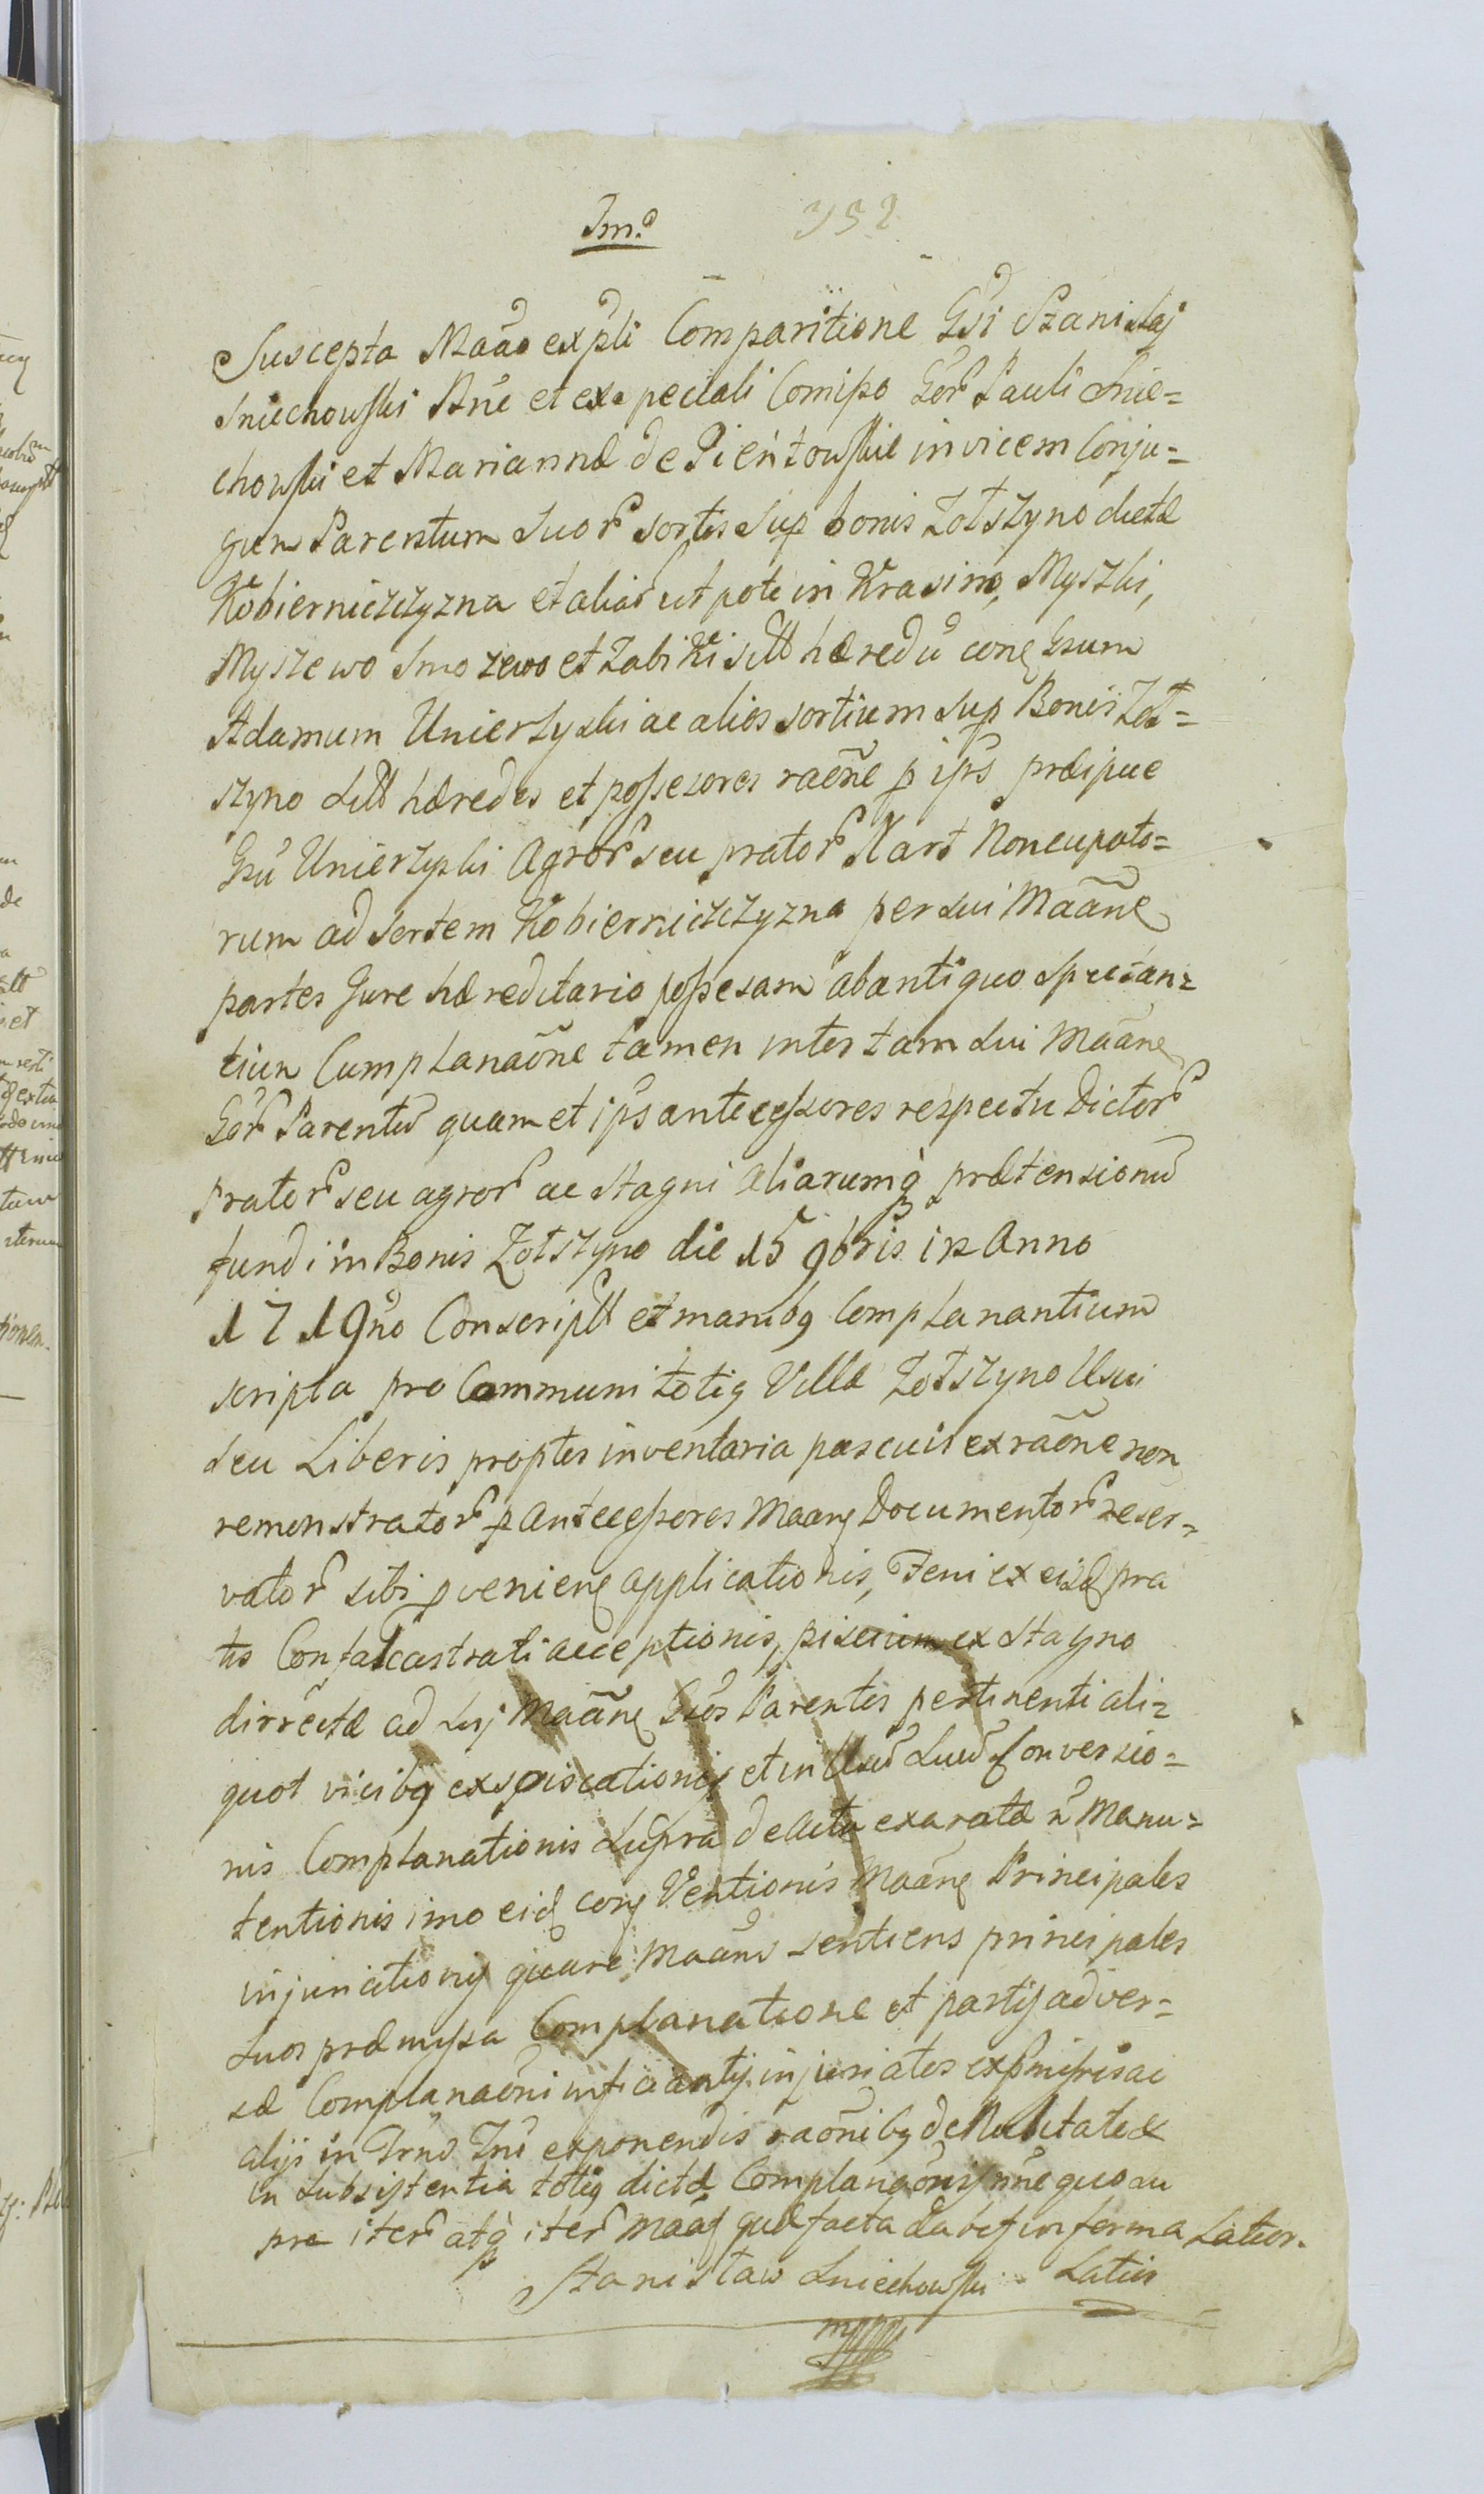 Im̃o
352
Suscepta Maão expłi Comparitione Gsi Stanislaj
Sniechowski Nrie et ex speciali Comißo Gor Pauli Snie=
chowski et Mariannæ de Pieńtowskie invicem Conju=
gum Parentum Suor sortis Sup bonis Zołszyno dictæ
Kobierniczczyzna et alias ut pote in Krasino, Myszki,
Myszewo Smozewo et Zabiki sitt hæredū cong Gsum
Adamum Unierzyski ac alios sortium Sup Bonis Zoł=
szyno Sitt hæredes et possesores raõne p ips præipue
Gsū Unierzyski Agror seu prator Nart Noncupato=
rum ad sortem Kobierniczczyzna per sui Maãne
partes Jure hæreditario possesam ab antiquo Spectan=
tium Cumplanaõne tamen inter tam Sui Maãne
Gor Parentū quam et ips antecessores respectu Dictor
Prator seu agror ac Stagni aliarumq prætensionū
fundi in Bonis Zołszyno die 15 9bris in Anno
1719no Conscriptt et manibq Complanantium
scripta pro Communi totiq Villæ Zołszyno Usui
seu Liberis propter inventaria pascuis ex raõne non
remonstrator p Antecessores Maang Documentor reser=
vator sibi pveniene applicationis, Feni ex eisd pra
tis Confalcastrati acceptionis, piscium ex Stagno
dirrectæ ad suj Maãne Gios Parentes pertinenti ali=
quot vicibq expiscationis et in Usū Suū Conversio=
nis Complanationis Supra de actu exaratæ n Manu=
tentionis imo eid cong Ventionis Maãne Principales
injuriationis quare Maans sentiens principales
Suos præmissa Complanatione et partis adver=
sæ Complanaõni insiaantis injuriatos ex pmissis ac
alijs in Trno Jni exponendis raõnibq de Nulitate &
in Subsistentia totiq dictæ Complanaõnis nne quo su
pra iter atq iter Maaf quæ facta dabit in forma Latior.
Stanisław Sniechowski Latius
mppp